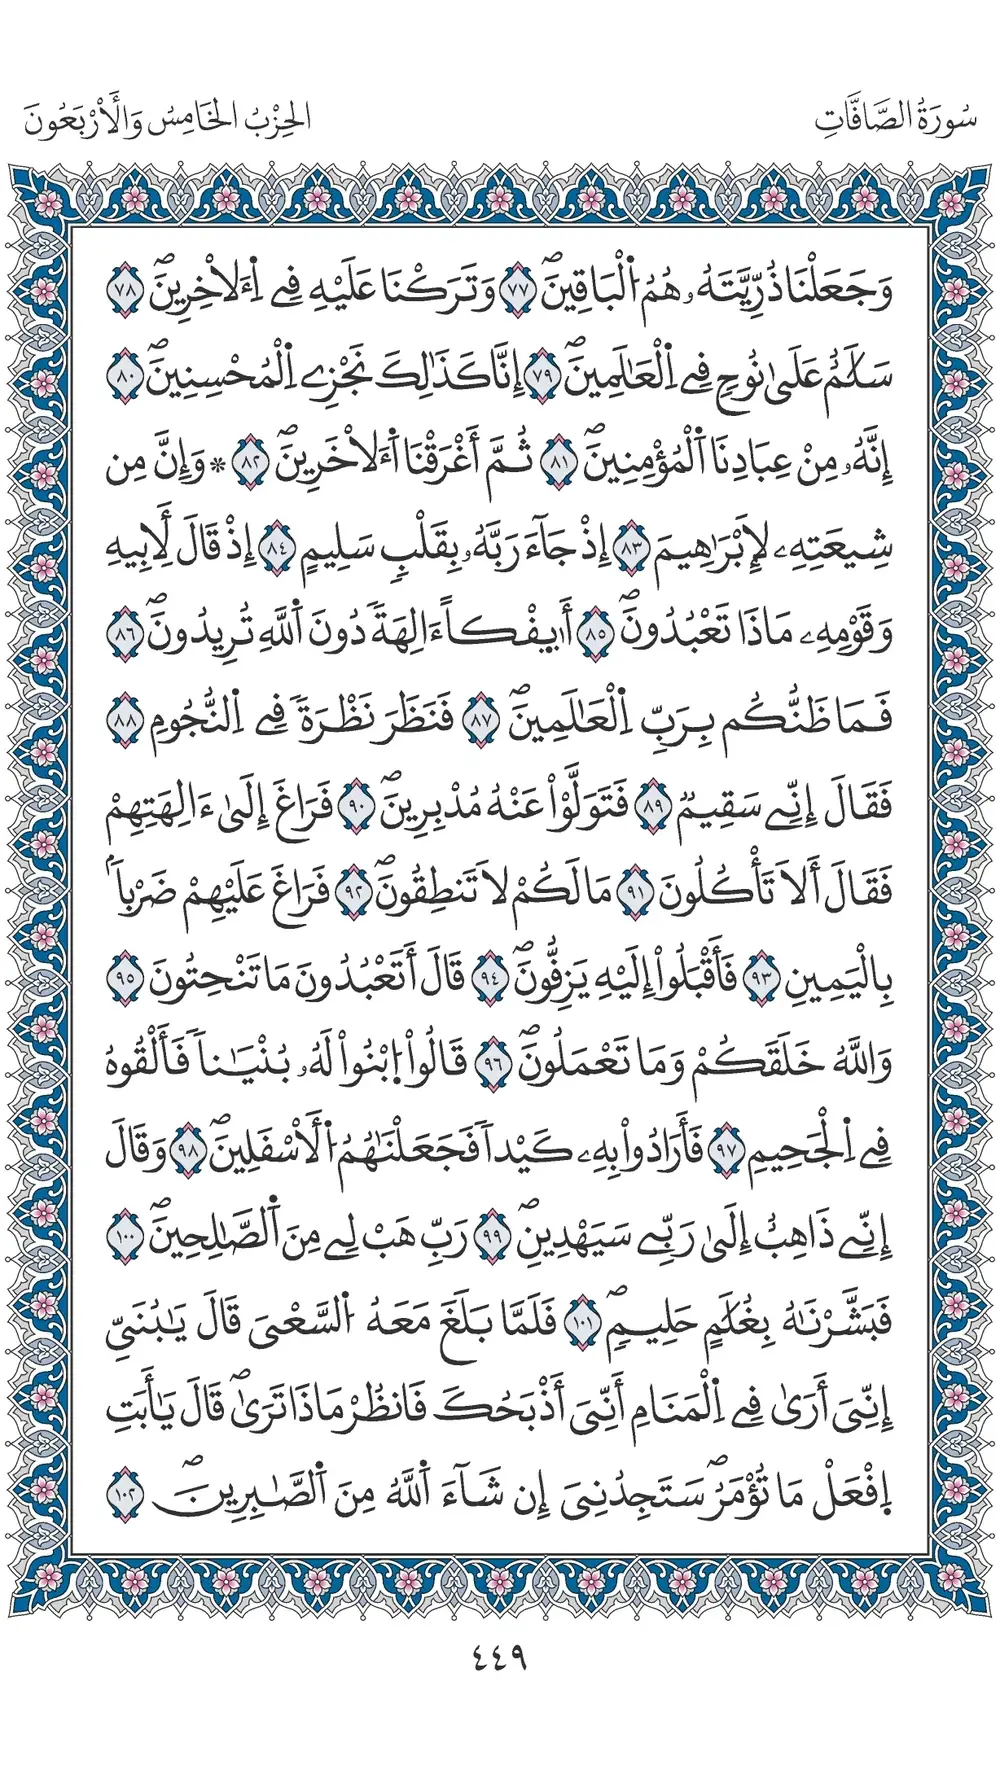 سُورَةُ الصَّافَّاتِ
الحِزْبُ الخَامِسُ وَالأَرْبَعُونَ
وَجَعَلْنَا ذُرِّيَّتَهُۥ هُمُ اُ۬لْبَاقِينَۖ ٧٧ وَتَرَكْنَا عَلَيْهِ فِے اِ۬لَاخِرِينَۖ ٧٨
سَلَٰمٌ عَلَىٰ نُوحٖ فِے اِ۬لْعَٰلَمِينَۖ ٧٩ إِنَّا كَذَٰلِكَ نَجْزِے اِ۬لْمُحْسِنِينَۖ ٨٠
إِنَّهُۥ مِنْ عِبَادِنَا اَ۬لْمُؤْمِنِينَۖ ٨١ ثُمَّ أَغْرَقْنَا اَ۬لَاخَرِينَۖ ٨٢ * وَإِنَّ مِن
شِيعَتِهِۦ لَإِبْرَٰهِيمَ ٨٣ إِذْ جَآءَ رَبَّهُۥ بِقَلْبٖ سَلِيمٍ ٨٤ إِذْ قَالَ لِأَبِيهِ
وَقَوْمِهِۦ مَاذَا تَعْبُدُونَۖ ٨٥ أَئِفْكاً ءَالِهَةٗ دُونَ اَ۬للَّهِ تُرِيدُونَۖ ٨٦
فَمَا ظَنُّكُم بِرَبِّ اِ۬لْعَٰلَمِينَۖ ٨٧ فَنَظَرَ نَظْرَةٗ فِے اِ۬لنُّجُومِ ٨٨
فَقَالَ إِنِّے سَقِيمٞ ٨٩ فَتَوَلَّوْاْ عَنْهُ مُدْبِرِينَۖ ٩٠ فَرَاغَ إِلَىٰ ءَالِهَتِهِمْ
فَقَالَ أَلَا تَأْكُلُونَ ٩١ مَا لَكُمْ لَا تَنطِقُونَۖ ٩٢ فَرَاغَ عَلَيْهِمْ ضَرْباَۢ
بِالْيَمِينِ ٩٣ فَأَقْبَلُواْ إِلَيْهِ يَزِفُّونَۖ ٩٤ قَالَ أَتَعْبُدُونَ مَا تَنْحِتُونَ ٩٥
وَاللَّهُ خَلَقَكُمْ وَمَا تَعْمَلُونَۖ ٩٦ قَالُواْ اُ۪بْنُواْ لَهُۥ بُنْيَٰناٗ فَأَلْقُوهُ
فِے اِ۬لْجَحِيمِ ٩٧ فَأَرَادُواْ بِهِۦ كَيْداٗ فَجَعَلْنَٰهُمُ اُ۬لْأَسْفَلِينَۖ ٩٨ وَقَالَ
إِنِّے ذَاهِبٌ إِلَىٰ رَبِّے سَيَهْدِينِۖ ٩٩ رَبِّ هَبْ لِے مِنَ اَ۬لصَّٰلِحِينَۖ ١٠٠
فَبَشَّرْنَٰهُ بِغُلَٰمٍ حَلِيمٖۖ ١٠١ فَلَمَّا بَلَغَ مَعَهُ اُ۬لسَّعْىَ قَالَ يَٰبُنَىِّ
إِنِّىَ أَرَىٰ فِے اِ۬لْمَنَامِ أَنِّىَ أَذْبَحُكَ فَانظُرْ مَاذَا تَرَىٰۖ قَالَ يَٰأَبَتِ
اِ۪فْعَلْ مَا تُؤْمَرُۖ سَتَجِدُنِىَ إِن شَآءَ اَ۬للَّهُ مِنَ اَ۬لصَّٰبِرِينَۖ ١٠٢
٤٤٩